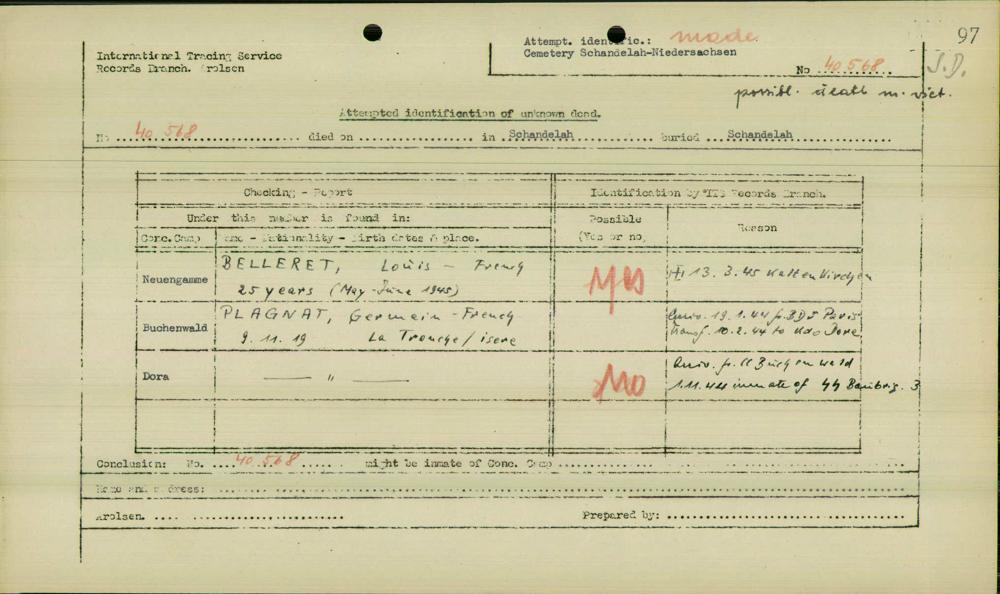 97
Attempt. identific.: made.
Cemetery Schandelah-Niedersachsen
International Tracing Service
Records Branch. Arolsen
No 40 568
J.D.
possibl. death m. vict.
Attempted identification of unknown dead.
No 40 568 died on in Schandelah buried Schandelah
Checking - Report
Identification by ITS Records Branch.
Under this number is found in:
Possible
(Yes or no)
Reason
Conc.Camp
Name - Nationality - Birth dates & place.
Neuengamme
BELLERET, Louis - French
25 years (May-June 1945)
yes
13. 3. 45 Kaltenkirchen
Buchenwald
PLAGNAT, Germain - French
9. 11. 19 La Tronche/isere
19.1.44 fr. BDS Paris
transf. 10.2.44 to Kdo Dora
Dora
— " —
no
fr. CC Buchenwald
1.11.44 inmate of SS Baubrig. 3
Conclusion: No. 40 568 might be inmate of Conc. Camp
Name and address:
Arolsen.
Prepared by: